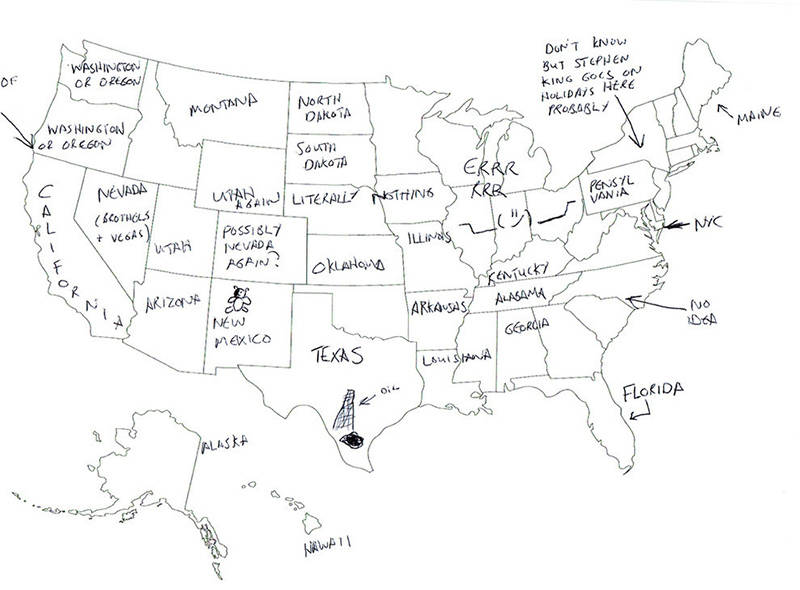 OF
WASHINGTON
OR OREGON
WASHINGTON
OR OREGON
MONTANA
NORTH
DAKOTA
SOUTH
DAKOTA
DON'T KNOW
BUT STEPHEN
KING GOES ON
HOLIDAYS HERE
PROBABLY
MAINE
ERRR
RRR
PENSYL
VANIA
NYC
CALIFORNIA
NEVADA
(BROTHELS
+ VEGAS)
UTAH
UTAH
AGAIN
LITERALLY
NOTHING
POSSIBLY
NEVADA
AGAIN?
ILLINOIS
OKLAHOMA
KENTUCKY
ALABAMA
ARIZONA
NEW
MEXICO
ARKANSAS
GEORGIA
NO
IDEA
TEXAS
LOUISIANA
OIL
FLORIDA
ALASKA
HAWAII